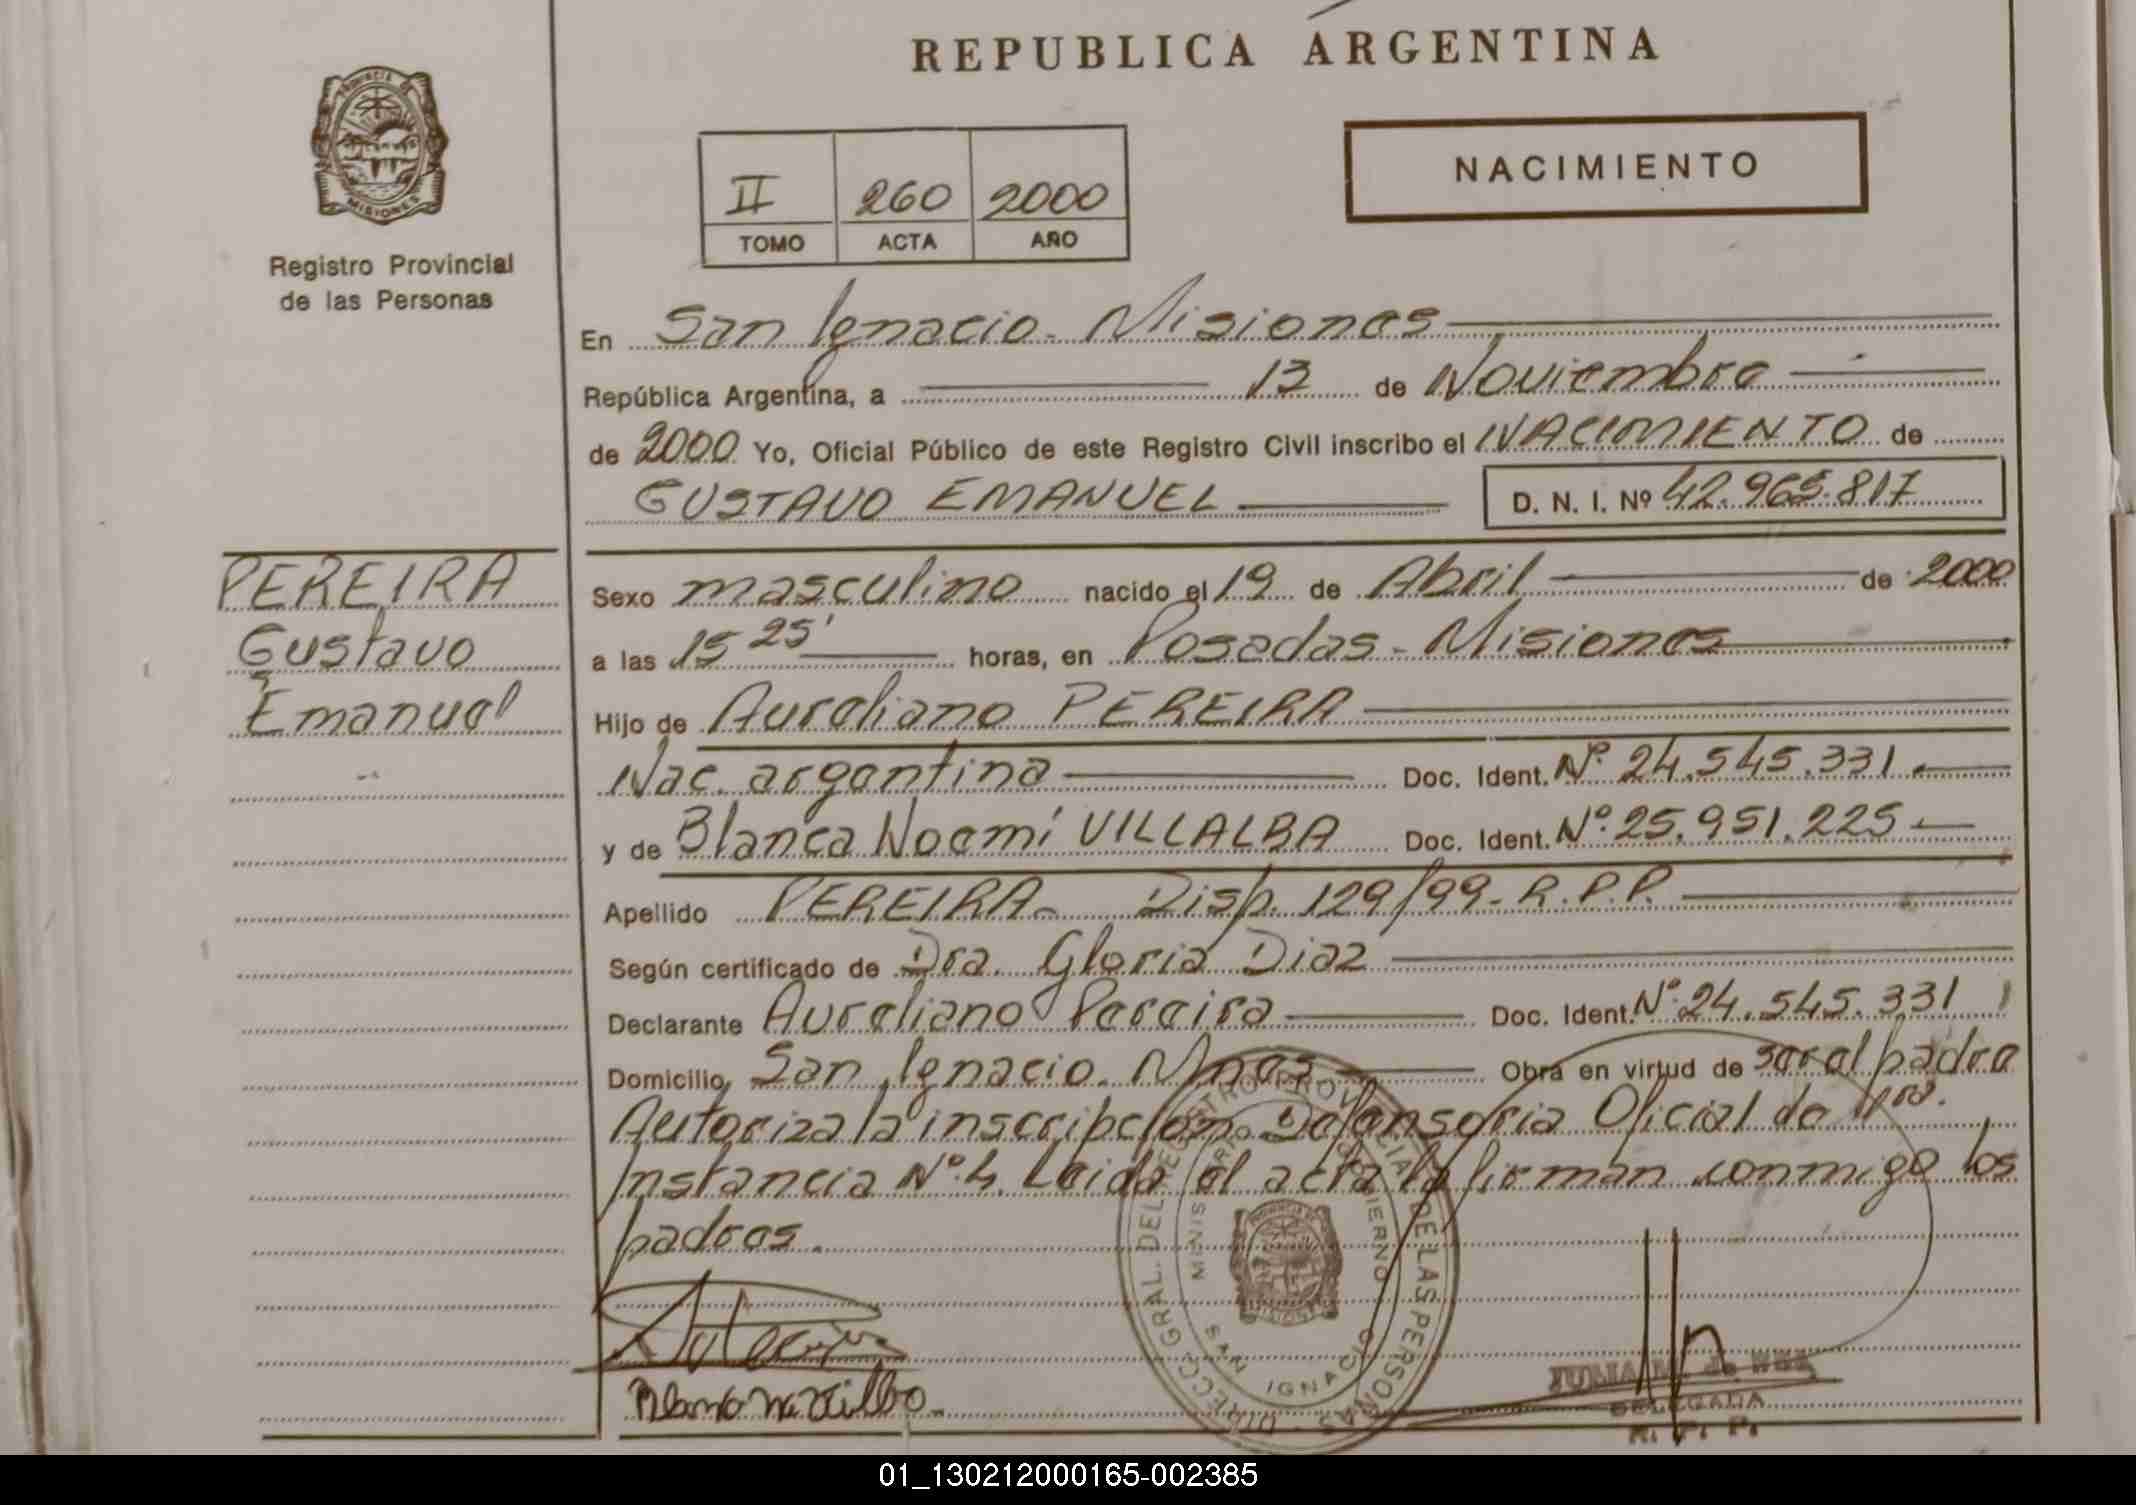 REPUBLICA ARGENTINA
PROVINCIA DE
MISIONES
Registro Provincial
de las Personas
NACIMIENTO
II 260 2000
TOMO ACTA AÑO
En San Ignacio - Misiones
República Argentina, a 13 de Noviembre
de 2000 Yo, Oficial Público de este Registro Civil inscribo el NACIMIENTO de
GUSTAVO EMANUEL D. N. I. Nº 42.965.817
PEREIRA
Gustavo
Emanuel
Sexo masculino nacido el 19 de Abril de 2000
a las 15 25' horas, en Posadas - Misiones
Hijo de Aureliano PEREIRA
Nac. argentina Doc. Ident. Nº 24.545.331.
y de Blanca Noemí VILLALBA Doc. Ident. Nº 25.951.225
Apellido PEREIRA - Disp. 129/99 - R.P.P.
Según certificado de Dra. Gloria Diaz
Declarante Aureliano Pereira Doc. Ident. Nº 24.545.331
Domicilio San Ignacio. Mnes Obra en virtud de ser el padre
Autoriza la inscripcion Defensoria Oficial de 1ra.
Instancia Nº 4. Leida el acta la firman conmigo los
padres.
DIRECC. GRAL. DEL REGISTRO PROVINCIAL DE LAS PERSONAS
MINISTERIO DE GOBIERNO
SAN IGNACIO
JULIA M. de
DELEGADA
R. P. P.
01_130212000165-002385